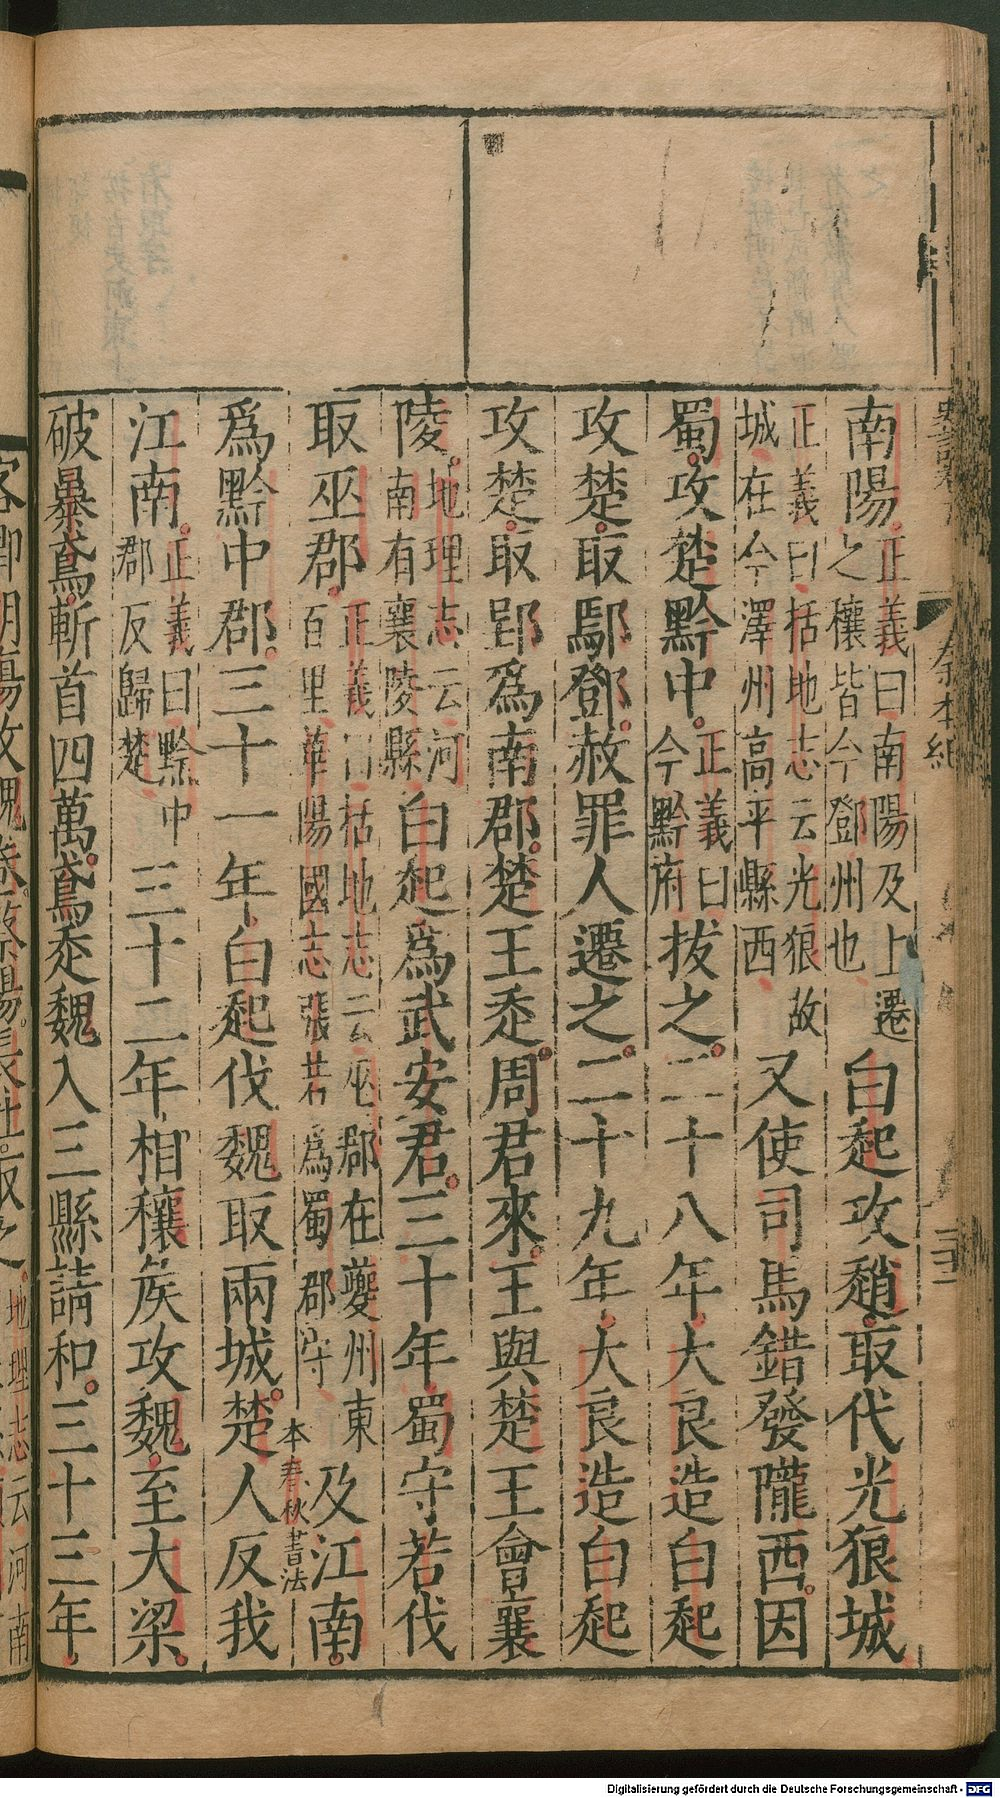 南陽正義曰南陽及上遷之穰皆今鄧州也白起攻趙取代光狼城
正義曰括地志云光狼故城在今澤州高平縣西又使司馬錯發隴西因
蜀攻楚黔中正義曰今黔府拔之二十八年大良造白起
攻楚取鄢鄧赦罪人遷之二十九年大良造白起
攻楚取郢爲南郡楚王走周君來王與楚王會襄
陵地理志云河南有襄陵縣白起爲武安君三十年蜀守若伐
取巫郡正義曰括地志云巫郡在夔州東百里華陽國志張若爲蜀郡守及江南
本春秋書法
爲黔中郡三十一年白起伐魏取兩城楚人反我
江南正義曰黔中郡反歸楚三十二年相穰侯攻魏至大梁
破暴鳶斬首四萬鳶走魏入三縣請和三十三年
秦本紀
三十二
Digitalisierung gefördert durch die Deutsche Forschungsgemeinschaft - DFG